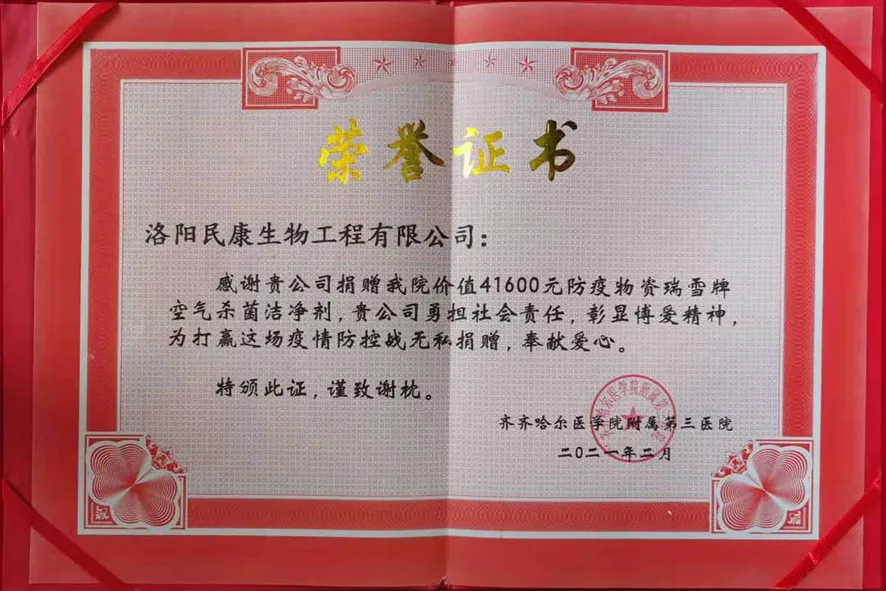 荣誉证书
洛阳民康生物工程有限公司：
感谢贵公司捐赠我院价值41600元防疫物资瑞雪牌
空气杀菌洁净剂，贵公司勇担社会责任，彰显博爱精神，
为打赢这场疫情防控战无私捐赠，奉献爱心。
特颁此证，谨致谢枕。
齐齐哈尔医学院附属第三医院
二〇二一年二月